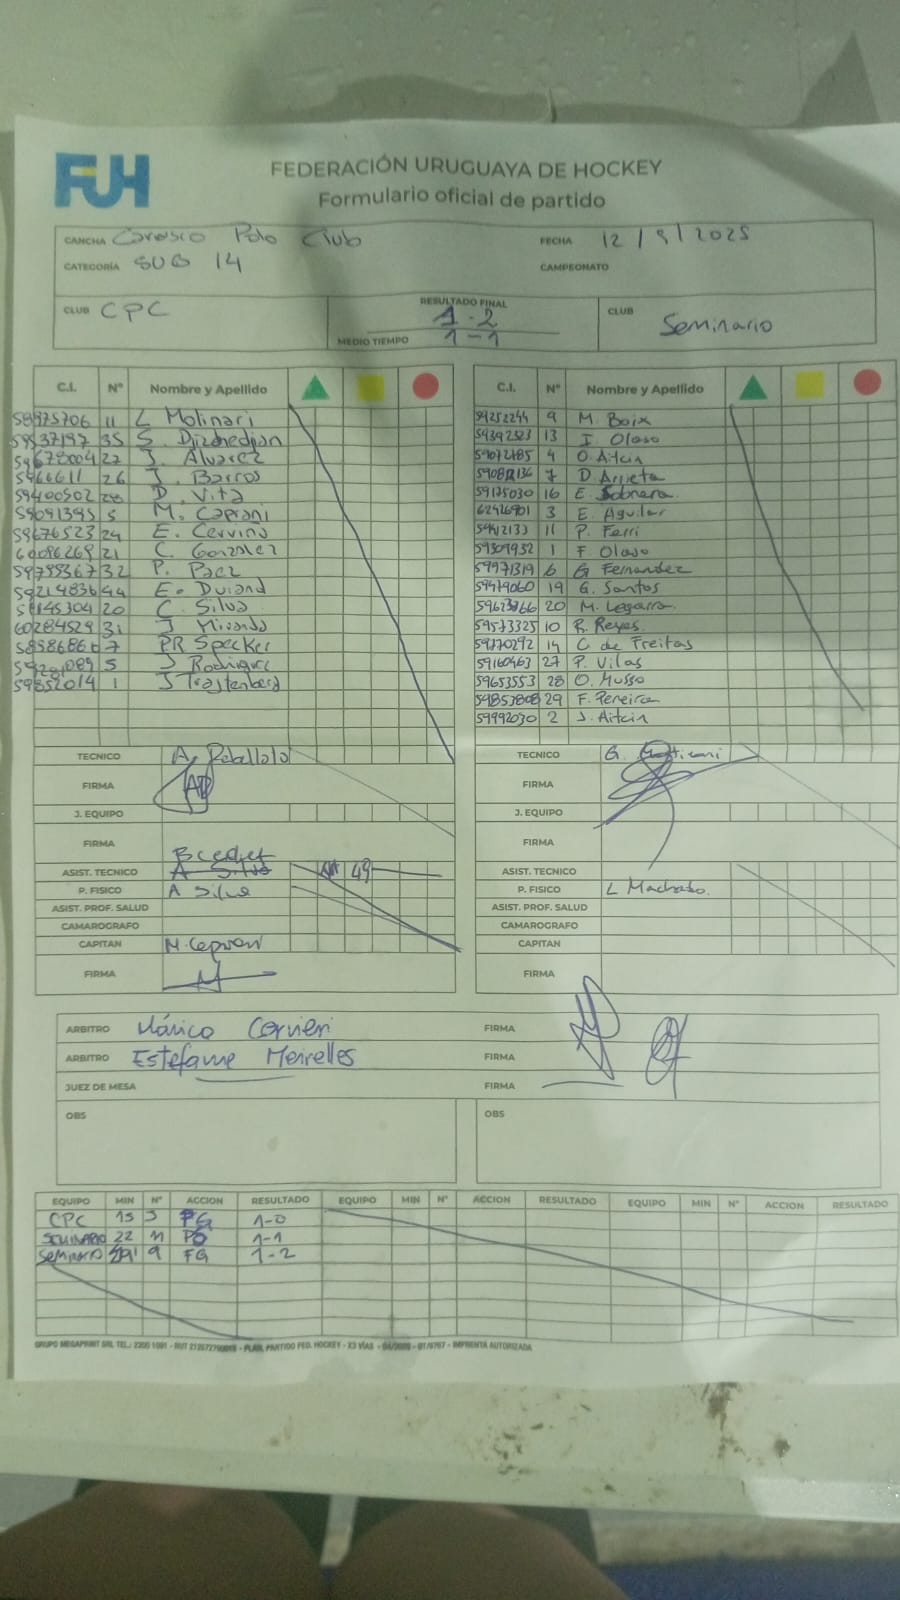 FUH
FEDERACIÓN URUGUAYA DE HOCKEY
Formulario oficial de partido
CANCHA Carrasco Polo Club FECHA 12/9/2025
CATEGORÍA SUB 14 CAMPEONATO
CLUB CPC RESULTADO FINAL 1-2 CLUB Seminario
MEDIO TIEMPO 1-1
C.I. Nº Nombre y Apellido C.I. Nº Nombre y Apellido
58975706 11 L Molinari 59252244 9 M. Boix
59537197 35 S. Djizhedjian 59392523 13 I. Olaso
59678004 27 J. Alvarez 59072185 4 O. Aitcin
5966611 26 J. Barros 7 D. Arrieta
59400502 28 D. Vita 59175030 16 E. Sobrera
59091395 5 M. Caprani 62926901 3 E. Aguilar
59676523 24 E. Cerviño 59412133 11 P. Ferri
60096269 21 C. Gonzalez 59309932 1 F. Olaso
59795367 32 P. Paez 59971319 6 G Fernandez
59214836 44 E. Durand 59479060 19 G. Santos
20 C. Silva 20 M. Legarra
60284529 31 J Miranda 59573325 10 R. Reyes
7 PR Specker 59170292 14 C de Freitas
5 J Rodriguez 59160463 27 P. Vilas
59852014 1 J Trajtenberg 59653553 28 O. Musso
59853808 29 F. Pereira
59992030 2 J. Aitcin
TECNICO A. Raballolo TECNICO G.
FIRMA FIRMA
J. EQUIPO J. EQUIPO
FIRMA FIRMA
ASIST. TECNICO A Silva 49 ASIST. TECNICO
P. FISICO A Silva P. FISICO L Machado.
ASIST. PROF. SALUD ASIST. PROF. SALUD
CAMAROGRAFO CAMAROGRAFO
CAPITAN M. Caprani CAPITAN
FIRMA FIRMA
ARBITRO Mónica Cervieri FIRMA
ARBITRO Estefanie Meirelles FIRMA
JUEZ DE MESA FIRMA
OBS OBS
EQUIPO MIN Nº ACCION RESULTADO EQUIPO MIN Nº ACCION RESULTADO EQUIPO MIN Nº ACCION RESULTADO
CPC 15 5 FG 1-0
SEMINARIO 22 11 1-1
SEMINARIO 9 FG 1-2
GRUPO MEGAPRINT SRL
PLAN. PARTIDO FED. HOCKEY - X3 VÍAS
IMPRENTA AUTORIZADA